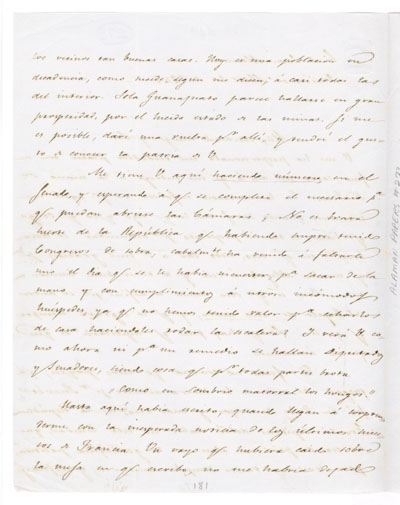 los vecinos tan buenas casas. Hoy es una poblacion en
decadencia, como sucede, segun me dicen, á casi todas las
del interior. Solo Guanajuato parece hallarse en gran
prosperidad, por el estado de las minas. Si me
es posible, daré una vuelta pr. allí, y tendré el gus-
to de conocer la patria de V.
Me tiene V. aquí haciendo número, en el
Senado, y esperando á qe. se complete el necesario pa.
qe. puedan abrirse las Cámaras; No es
de la República, qe. habiendo siempre tenido
Congresos de sobra, ha venido á faltarle
uno el dia qe. se le habia menester pa. sacar de la
mano, y con cumplimientos á incómodos
huéspedes, ya qe. no hemos tenido valor pa. echarlos
de casa haciendoles rodar la escalera? Y verá V. co-
mo ahora ni pa. un remedio se hallan Diputados
y Senadores, siendo cosa qe. pr. todas partes brota
"como en sombrio matorral los hongos."
Hasta aquí habia escrito, quando llegan á
con la inesperada noticia de los últimos suce-
sos de Francia. Un rayo qe. hubiera caido sobre
la mesa en qe. escribo, no me habria dejado
181
ALAMAN PAPERS #